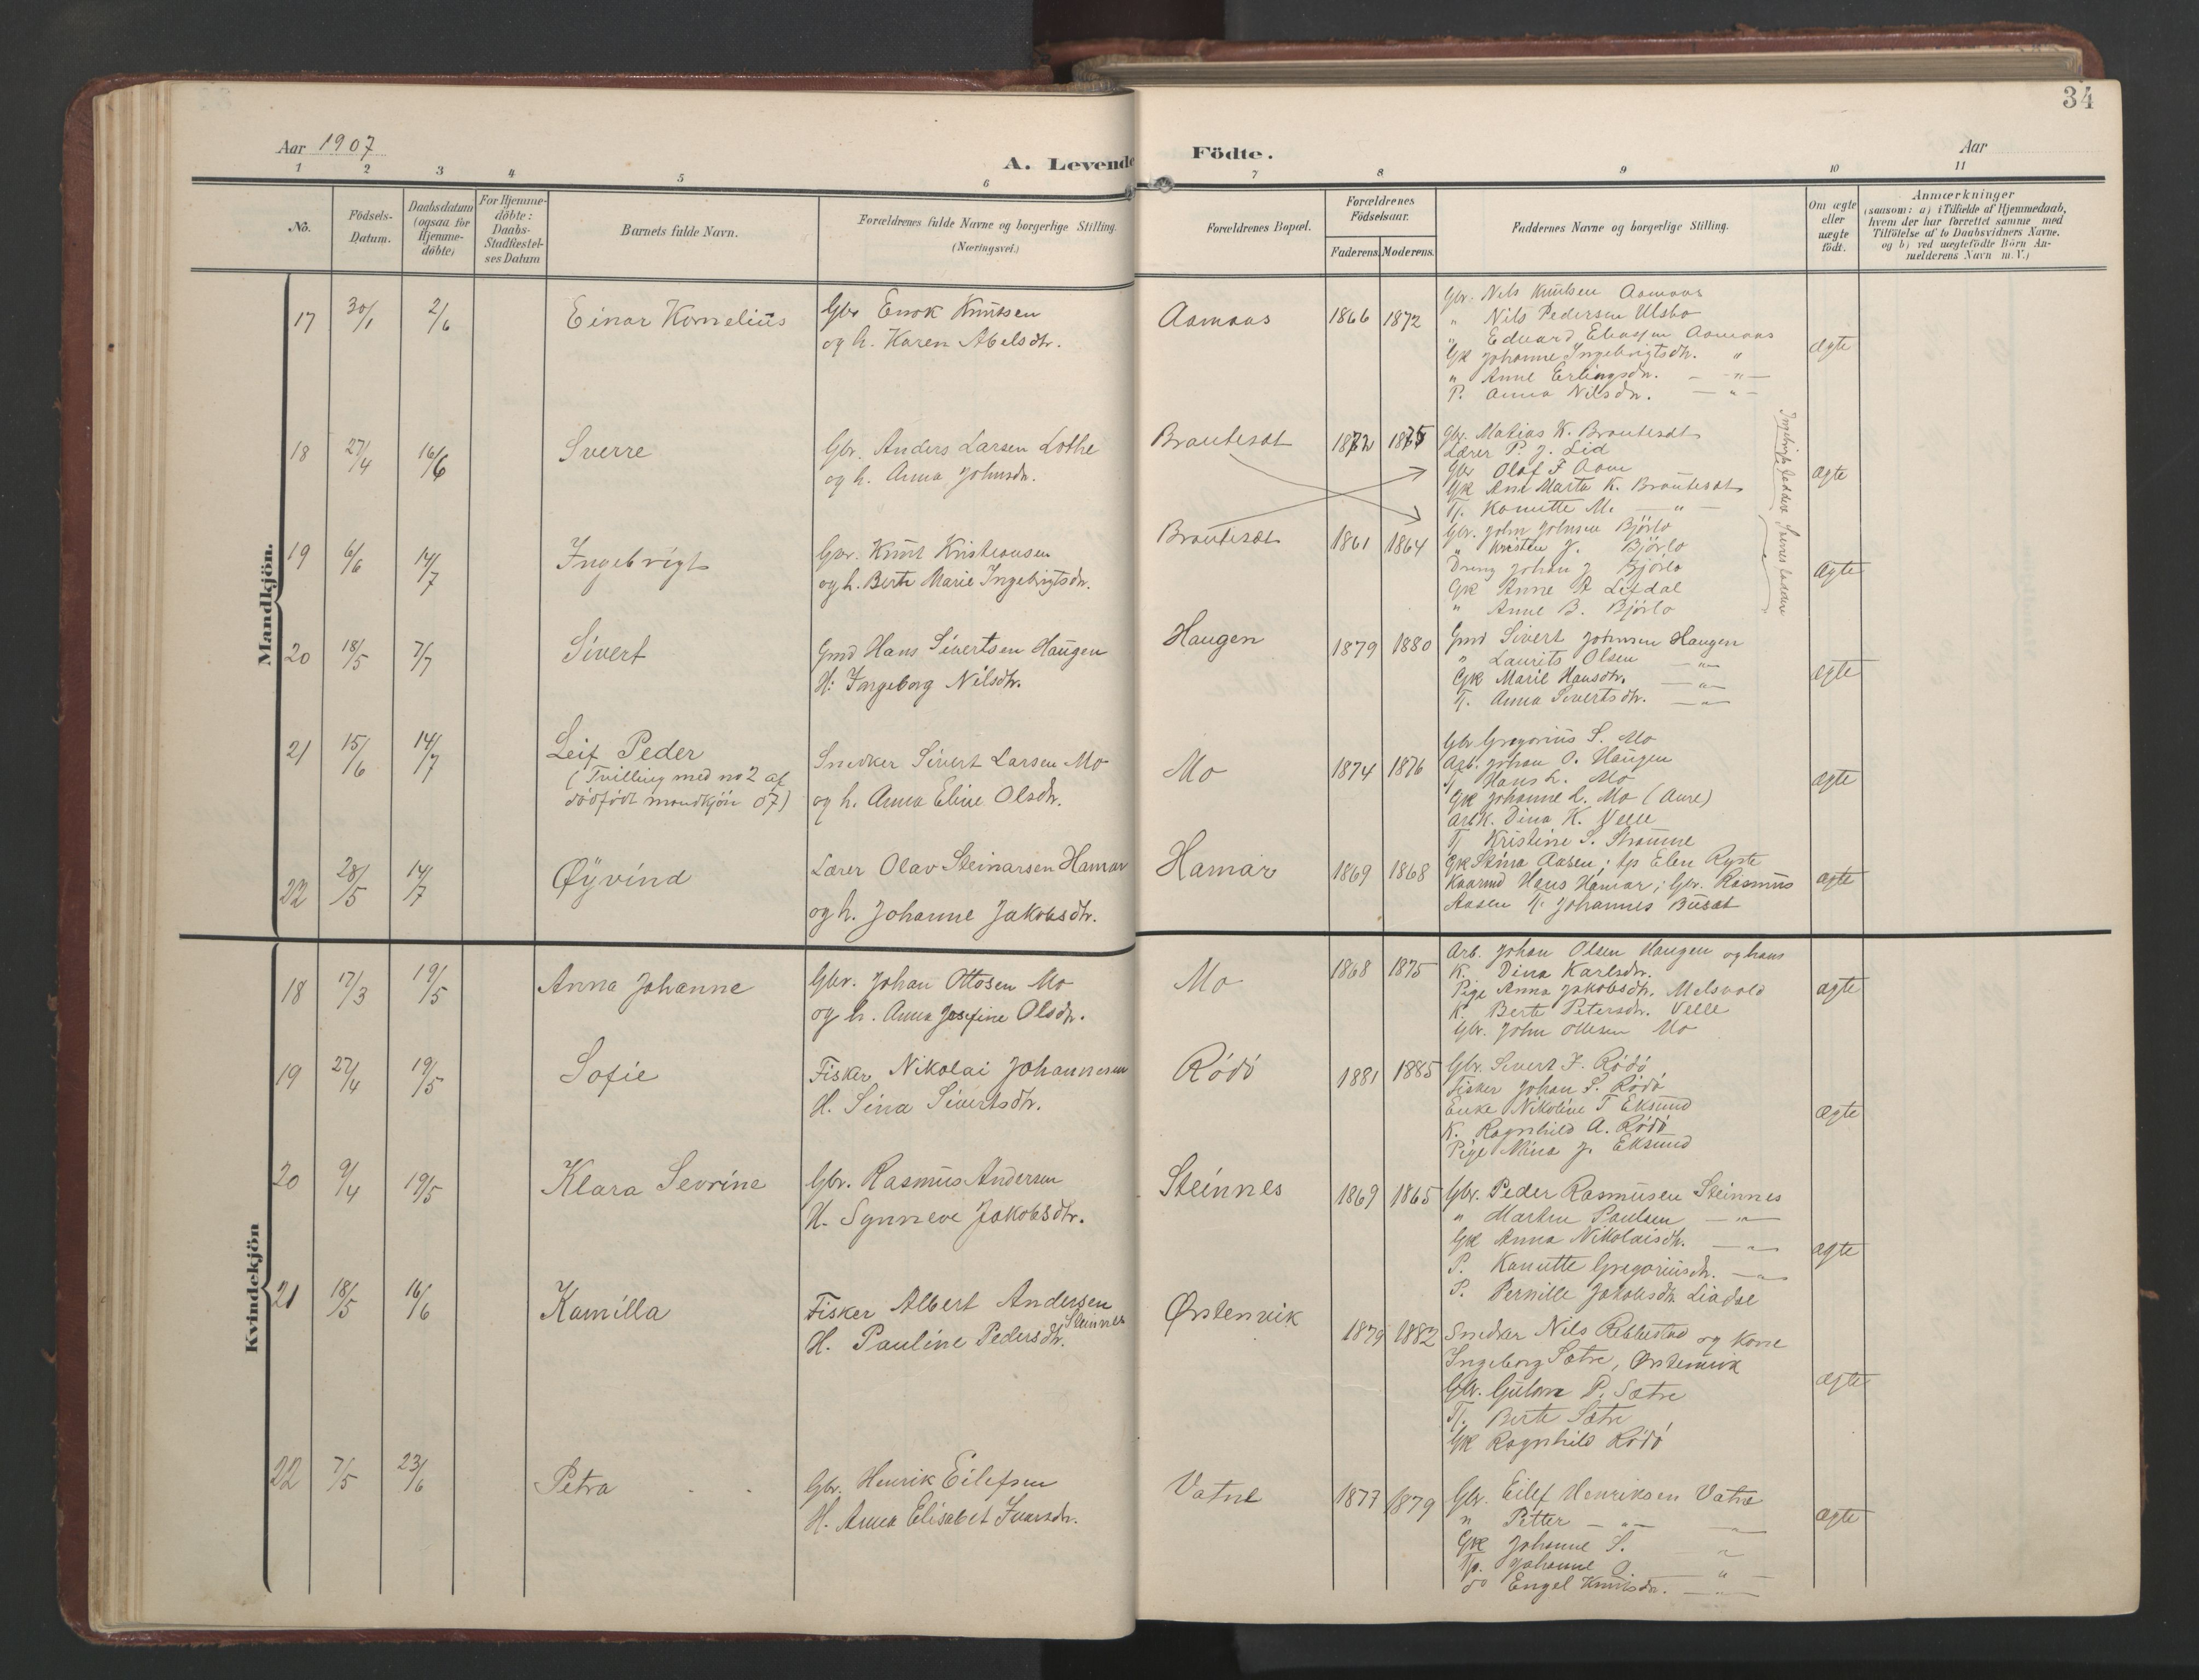 34
Aar 1907
A. Levende Födte.
Aar
1 2 3 4 5 6 7 8 9 10 11
No.
Födsels-Datum.
Daabsdatum (ogsaa for Hjemme-döbte)
For Hjemme-döbte: Daabs-Stadfæstel-ses Datum
Barnets fulde Navn.
Forældrenes fulde Navne og borgerlige Stilling. (Næringsvei.)
Forældrenes Bopæl.
Forældrenes Födselsaar.
Faderens. Moderens.
Faddernes Navne og borgerlige Stilling.
Om ægte eller uægte födt.
Anmærkninger
(saasom: a) i Tilfælde af Hjemmedaab,
hvem der har forrettet samme med
Tilföielse af to Daabsvidners Navne,
og b) ved uægtefödte Börn An-
melderens Navn m.V.)
Mandkjön.
17 30/1 2/6 Einar Kornelius
Gbr Enok Knutsen
og h. Karen Abelsdtr.
Aamaas 1866 1872
Gbr. Nils Knutsen Aamaas
" Nils Pedersen Ulsbo
" Eduard Eliassen Aamaas
Gk Johanne Ingebrigtsdtr. "
" Anne Erlingsdtr. — " —
P. Anna Nilsdtr. — " —
ægte
18 27/4 16/6 Sverre
Gbr. Anders Larsen Lothe
og h. Anna Johnsdtr.
Brautesæt 1872 1875
Gbr. Matias K. Brautesæt
Lærer P. J. Lid
Gbr Olaf F Aam
Gk Ane Marta K. Brautesæt
Tj. Kanutte M. — " —
ægte
Ingebrigts faddere
Sverres faddere
19 6/6 14/7 Ingebrigt
Gbr. Knut Kristiansen
og h. Berte Marie Ingebrigtsdtr.
Brautesæt 1861 1864
Gbr. John Johnsen Bjørlo
" Kristen J. Bjørlo
Dreng Johan J Bjørlo
Gk Anne A Lefdal
" Anne B. Bjørlo
ægte
20 18/5 7/7 Sivert
Gmd Hans Sivertsen Haugen
H: Ingeborg Nilsdtr.
Haugen 1879 1880
Gmd Sivert Johnsen Haugen
" Laurits Olsen — " —
Gk Marie Hansdtr. — " —
Tj. Anna Sivertsdtr. — " —
ægte
21 15/6 14/7 Leif Peder
(Tvilling med no 2 af
dødfødt mandkjön 07)
Snedker Sivert Larsen Mo
og h. Anna Eline Olsdtr.
Mo 1874 1876
Gbr Gregorius S. Mo
Arb. Johan O. Haugen
Tj Hans L. Mo
Gk Johanne L. Mo (Aure)
Arbk. Dina K. Velle
Tj Kristine S. Strømme
ægte
22 28/5 14/7 Øyvind
Lærer Olav Steinarsen Hamar
og h. Johanne Jakobsdtr.
Hamar 1869 1868
Gk Stina Aasen; tp Elen Ryste
Kaarmd Hans Hamar; Gbr. Rasmus
Aasen Tj. Johannes Busæt
ægte
Kvindekjön
18 17/3 19/5 Anna Johanne
Gbr. Johan Ottosen Mo
og h. Anna Josefine Olsdtr.
Mo 1868 1875
Arb. Johan Olsen Haugen og hans
K. Dina Karlsdtr.
Pige Anna Jakobsdtr. Melsvold
K. Berte Petersdtr. Velle
Gbr. John Ottesen Mo
ægte
19 27/4 19/5 Sofie
Fisker Nikolai Johannesen
H. Sina Sivertsdtr.
Rødø 1881 1885
Gbr. Sivert J. Rødø
Fisker Johan S. Rødø
Enke Nikoline T Eksund
K. Ragnhild A. Rødø
Pige Nina J. Eksund
ægte
20 9/4 19/5 Klara Sevrine
Gbr. Rasmus Andersen
H. Synneve Jakobsdtr.
Steinnes 1869 1865
Gbr. Peder Rasmusen Steinnes
" Marten Paulsen — " —
Gk Anna Nikolaisdtr. — " —
P. Kanutte Gregoriusdtr. — " —
P. Pernille Jakobsdtr. Liadal
ægte
21 18/5 16/6 Kamilla
Fisker Albert Andersen
Steinnes
H. Pauline Pedersdtr.
Ørstenvik 1879 1882
Snedker Nils Rebbestad og Kone
Ingeborg Sætre, Ørstenvik
Gbr. Gutorm P. Sætre
Tj. Berte Sætre
Gk Ragnhild Rødø
ægte
22 7/5 23/6 Petra
Gbr. Henrik Eilefsen
H. Anna Elisabet Ivarsdtr.
Vatne 1877 1879
Gbr. Eilef Henriksen Vatne
" Petter — " — — " —
Gk Johanne S. "
Tp. Johanne O — " —
do Engel Knutsdtr. — " —
ægte